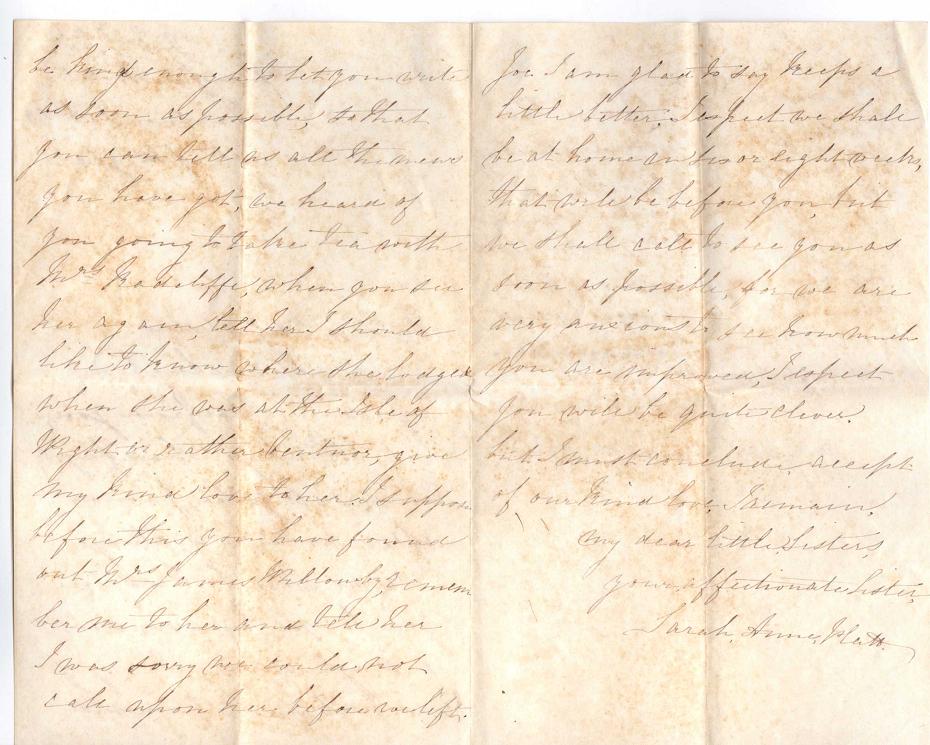 be kind enough to let you write
as soon as possible, so that
you can tell us all the news
you have got, we heard of
you going to take tea with
Mrs Radcliffe, when you see
her again, tell her I should
like to know where she lodged
when she was at the Isle of
Wight or rather Ventnor, give
my kind love to her. I suppose
before this you have found
out Mrs James Willowby, remem
ber me to her and tell her
I was sorry we could not
call upon her before we left.
Joe I am glad to say keeps a
little better. I expect we shall
be at home in six or eight weeks,
that will be before you, but
we shall call to see you as
soon as possible, for we are
very anxious to see how much
you are improved, I expect
you will be quite clever.
but I must conclude, accept
of our kind love. I remain.
my dear little Sisters,
your affectionate Sister,
Sarah Anne Platt.